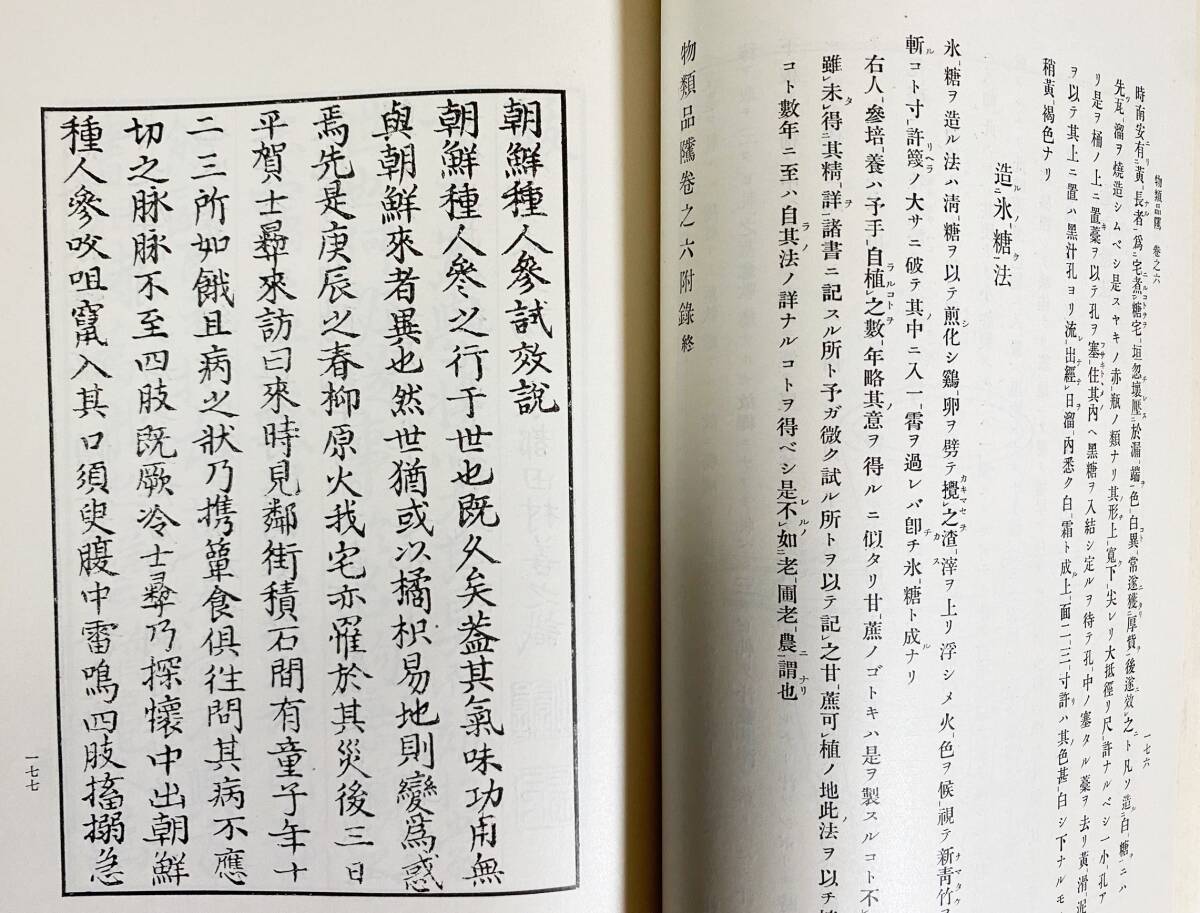 物類品隲 卷之六
一七六
時南安有黃長者爲宅煮糖宅垣忽壞壓於漏端色白異常遂獲厚貲後遂效之ト凡ソ造白糖ニハ
先瓦溜ヲ燒造シムベシ是スヤキノ赤瓶ノ類ナリ其形上寬下尖レリ大抵徑リ尺許ナルベシ一小孔ア
リ是ヲ桶ノ上ニ置藁ヲ以テ孔ヲ塞住其內ヘ黑糖ヲ入結シ定ルヲ待テ孔中ノ塞タル藁ヲ去リ黃滑泥
ヲ以テ其上ニ置ハ黑汁孔ヨリ流出經日溜內悉ク白霜ト成上面二三寸許ハ其色甚白シ下ナルモ
稍黃褐色ナリ
造氷糖法
氷糖ヲ造ル法ハ淸糖ヲ以テ煎化シ鷄卵ヲ劈テ攪之渣滓ヲ上リ浮シメ火色ヲ候視テ新青竹ヲ
斬コト寸許篾ノ大サニ破テ其中ニ入一霄ヲ過レバ卽チ氷糖ト成ナリ
右人參培養ハ予手自植之數年略其意ヲ得ルニ似タリ甘蔗ノゴトキハ是ヲ製スルコト不
雖未得其精詳諸書ニ記スル所ト予ガ微ク試ル所トヲ以テ記之甘蔗可植ノ地此法ヲ以テ
コト數年ニ至ハ自其法ノ詳ナルコトヲ得ベシ是不如老圃老農謂也
物類品隲卷之六附錄終
朝鮮種人參試效說
朝鮮種人參之行于世也既久矣蓋其氣味功用無
與朝鮮來者異也然世猶或以橘枳易地則變爲惑
焉先是庚辰之春柳原火我宅亦罹於其災後三日
平賀士彝來訪曰來時見鄰街積石間有童子年十
二三所如餓且病之狀乃携簞食俱徃問其病不應
切之脉脉不至四肢既厥冷士彝乃探懷中出朝鮮
種人參㕮咀窜入其口須臾腹中雷鳴四肢搐搦急
一七七